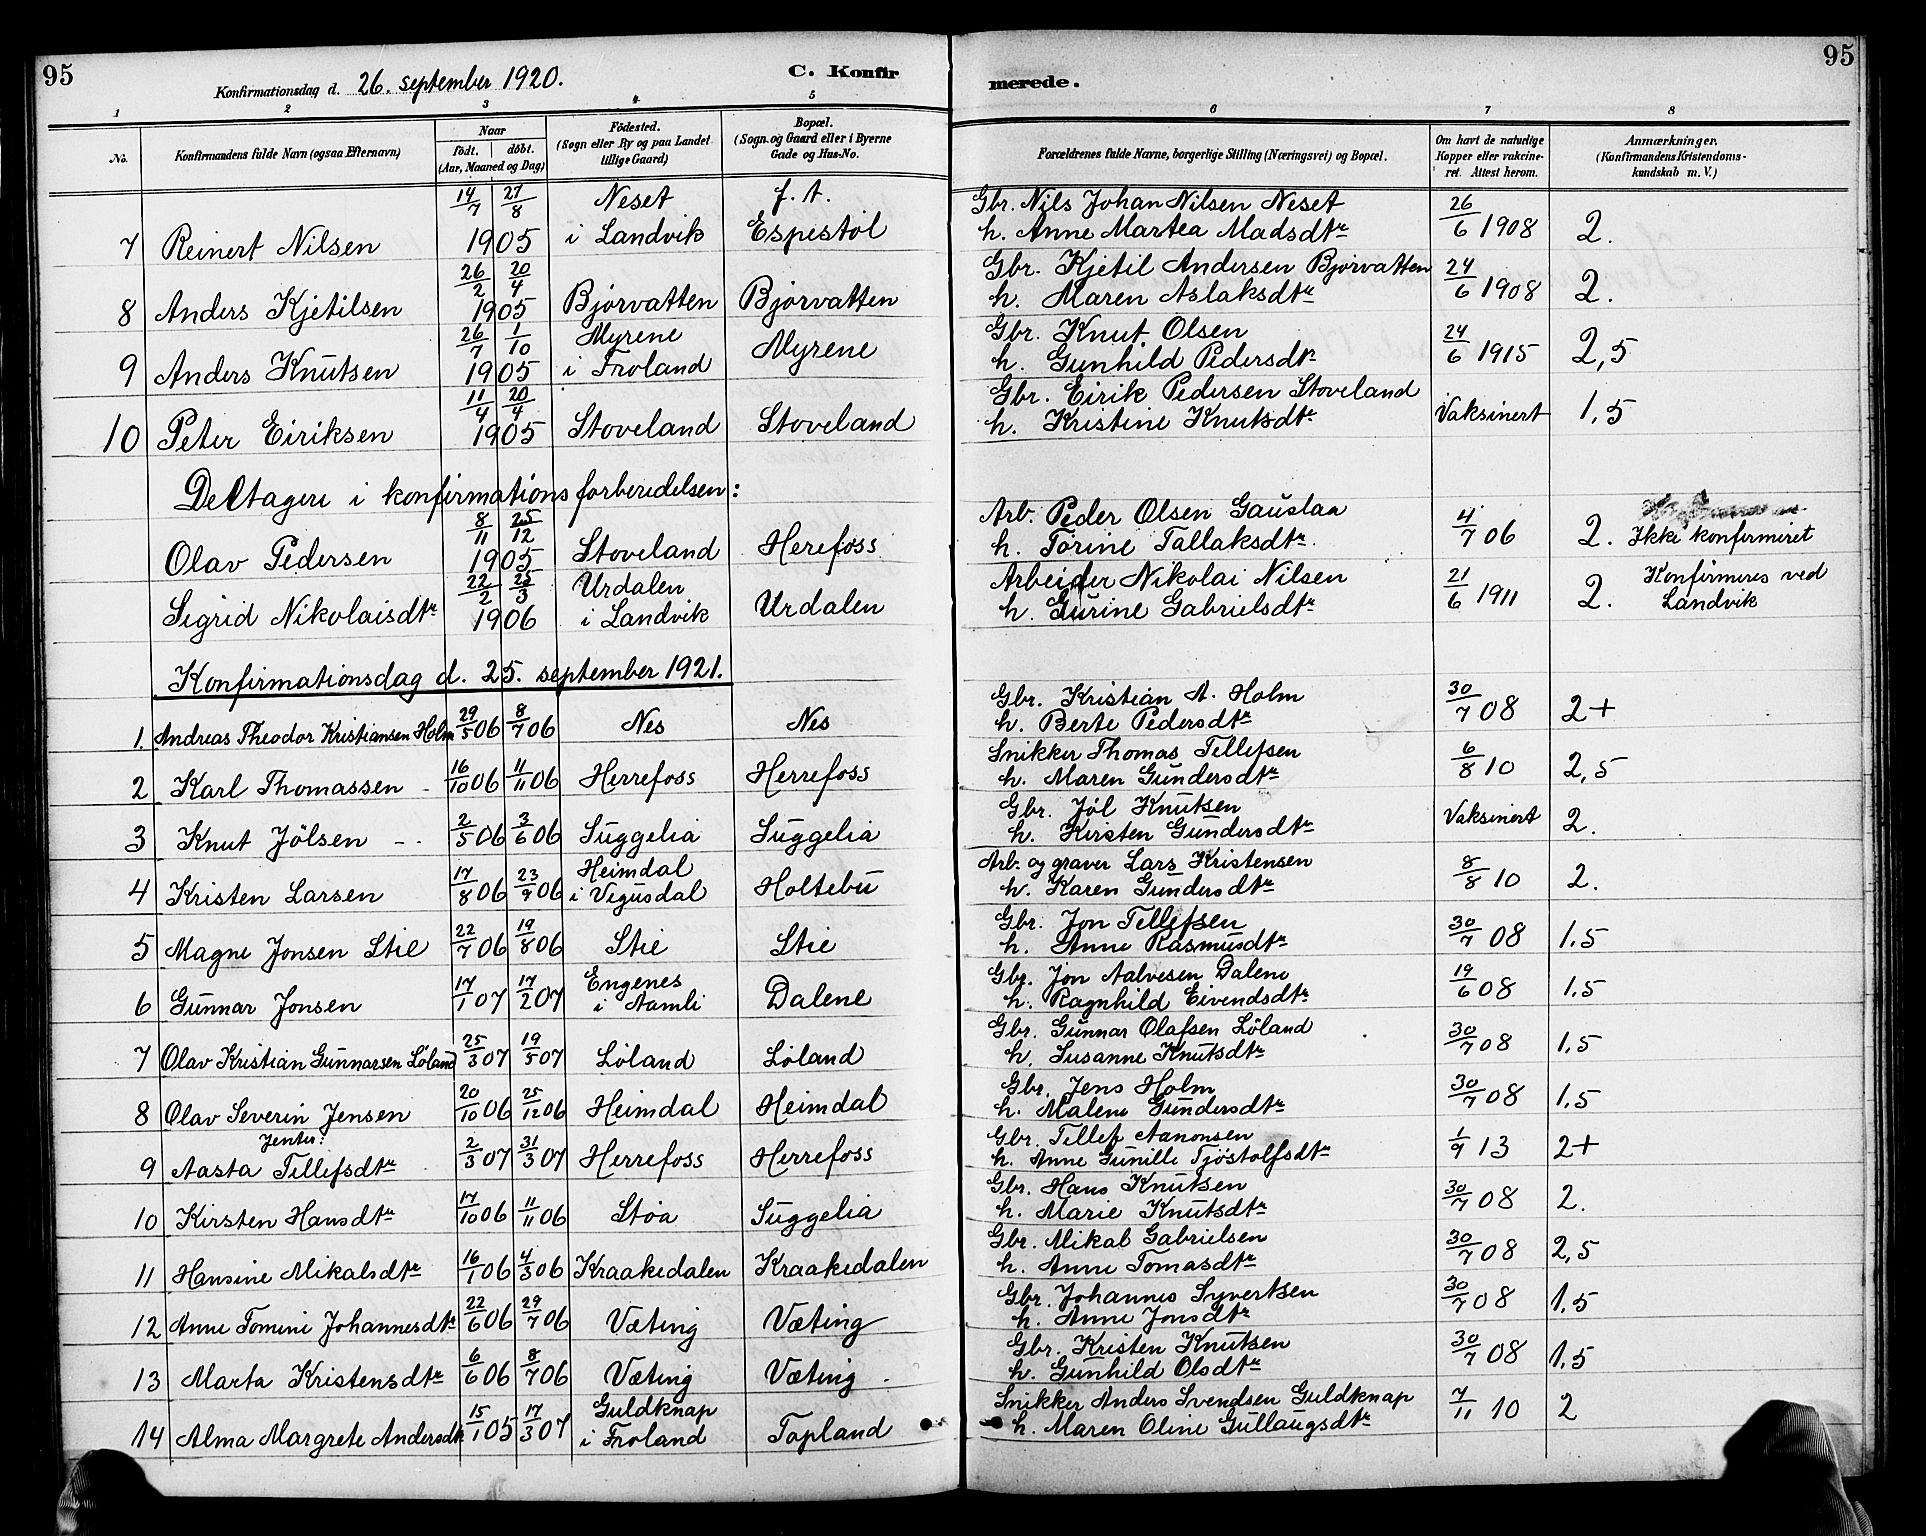 95
Konfirmationsdag d. 26. september 1920.
C. Konfirmerede.
95
1 2 3 4 5 6 7 8
No. | Konfirmandens fulde Navn (ogsaa Efternavn) | Naar födt. döbt. (Aar, Maaned og Dag) | Födested. (Sogn eller By og paa Landet tillige Gaard) | Bopæl. (Sogn og Gaard eller i Byerne Gade og Hus-No. | Forældrenes fulde Navne, borgerlige Stilling (Næringsvei) og Bopæl. | Om havt de naturlige Kopper eller vakcineret. Attest herom. | Anmærkninger. (Konfirmandens Kristendomskundskab m. V.)
7 Reinert Nilsen 14/7 27/8 1905 Neset i Landvik f. A. Espestöl Gbr. Nils Johan Nilsen Neset h. Anne Martea Madsdtr 26/6 1908 2.
8 Anders Kjetilsen 26/2 20/4 1905 Bjorvatten Bjorvatten Gbr. Kjetil Andersen Bjorvatten h. Maren Aslaksdtr 24/6 1908 2.
9 Anders Knutsen 26/7 1/10 1905 Myrene i Froland Myrene Gbr. Knut Olsen h. Gunhild Pedersdtr 24/6 1915 2,5
10 Peter Eiriksen 11/4 20/4 1905 Stoveland Stoveland Gbr. Eirik Pedersen Stoveland h. Kristine Knutsdtr Vaksinert 1,5
Deltagere i konfirmationsforberedelsen:
Olav Pedersen 8/11 25/12 1905 Stoveland Herefoss Arb. Peder Olsen Gauslaa h. Torine Tallaksdtr. 4/7 06 2. Ikke konfirmeret
Sigrid Nikolaisdtr 22/2 25/3 1906 Urdalen i Landvik Urdalen Arbeider Nikolai Nilsen h. Gurine Gabrielsdtr 21/6 1911 2. Konfirmeres ved Landvik
Konfirmationsdag d. 25. september 1921.
1. Andreas Theodor Kristiansen Holm 29/5 06 8/7 06 Nes Nes Gbr. Kristian A. Holm h. Berte Pedersdtr 30/7 08 2+
2 Karl Thomassen 16/10 06 11/11 06 Herrefoss Herrefoss Snikker Thomas Tellefsen h. Maren Gundersdtr 6/8 10 2,5
3 Knut Jölsen 2/5 06 3/6 06 Suggelia Suggelia Gbr. Jöl Knutsen h. Kirsten Gundersdtr Vaksinert 2.
4 Kristen Larsen 17/8 06 23/9 06 Heimdal i Vegusdal Holtebu Arb. og graver Lars Kristensen h. Karen Gundersdtr 8/8 10 2.
5 Magne Jonsen Stie 22/7 06 19/8 06 Stie Stie Gbr. Jon Tellefsen h. Anne Rasmusdtr 30/7 08 1,5
6 Gunnar Jonsen 17/1 07 17/2 07 Engenes i Aamli Dalene Gbr. Jon Aalvesen Dalene h. Ragnhild Eivendsdtr 19/6 08 1,5
7 Olav Kristian Gunnarsen Löland 25/3 07 19/5 07 Löland Löland Gbr. Gunnar Olafsen Löland h. Susanne Knutsdtr 30/7 08 1,5
8 Olav Severin Jensen 20/10 06 25/12 06 Heimdal Heimdal Gbr. Jens Holm h. Malene Gundersdtr 30/7 08 1,5
Jenter:
9 Aasta Tellefsdtr 2/3 07 31/3 07 Herrefoss Herrefoss Gbr. Tellef Aanonsen h. Anne Gunille Tjöstolfsdtr 1/9 13 2+
10 Kirsten Hansdtr 17/10 06 11/11 06 Stöa Suggelia Gbr. Hans Knutsen h. Marie Knutsdtr 30/7 08 2.
11 Hansine Mikalsdtr 16/1 06 4/3 06 Kraakedalen Kraakedalen Gbr. Mikal Gabrielsen h. Anne Tomasdtr 30/7 08 2,5
12 Anne Tomine Johannesdtr 22/6 06 29/7 06 Væting Væting Gbr. Johannes Syvertsen h. Anne Jonsdtr 30/7 08 1,5
13 Marta Kristensdtr 6/6 06 8/7 06 Væting Væting Gbr. Kristen Knutsen h. Gunhild Olsdtr 30/7 08 1,5
14 Alma Margrete Andersdtr 15/1 05 17/3 07 Guldknap i Froland Topland Snikker Anders Svendsen Guldknap h. Maren Oline Gullaugsdtr 7/11 10 2